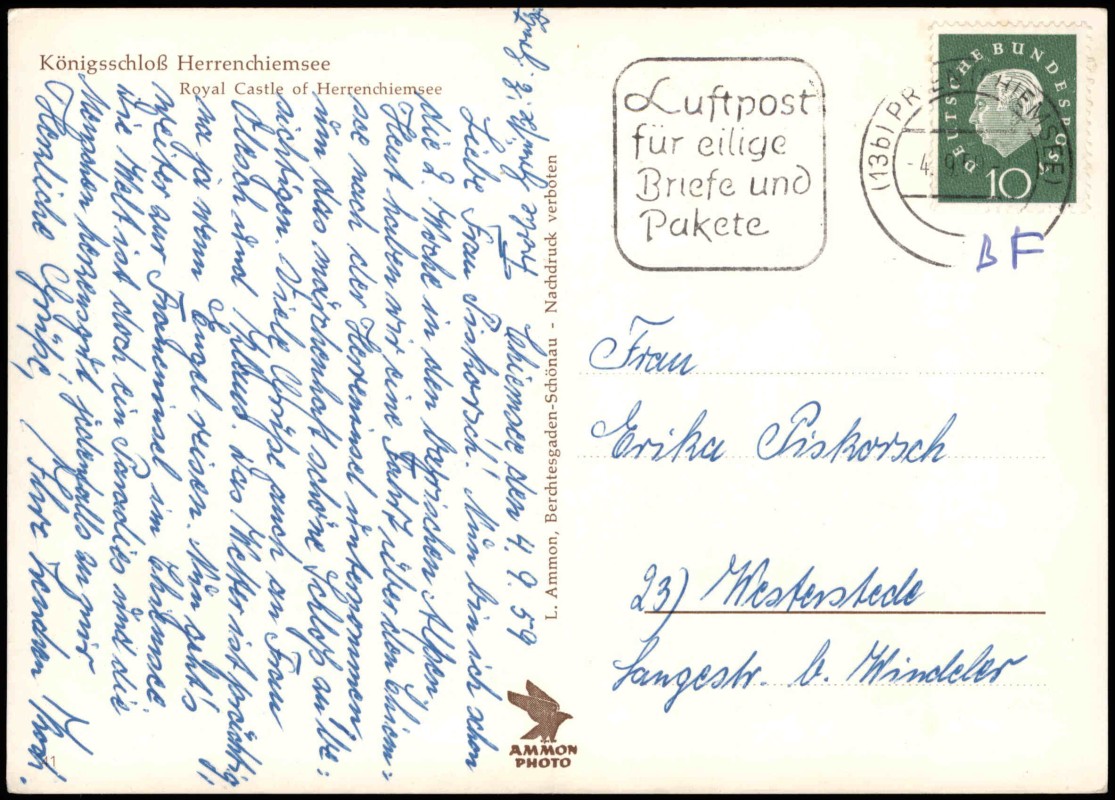 Königsschloß Herrenchiemsee
Royal Castle of Herrenchiemsee
Chiemsee den 4. 9. 59
Liebe Frau Piskorsch! Nun bin ich schon
die 2. Woche in den bayrischen Alpen
Heut haben wir eine Fahrt über den Chiem-
see nach der Herreninsel unternommen
um das märchenhaft schöne Schloß an
sichtigen. Viele Grüße auch an Frau
und Das Wetter ist prächtig
na ja wenn Engel reisen. Nun geht's
weiter zur Fraueninsel im Chiemsee
die Welt ist doch ein Paradies und die
Menschen herzensgut jedenfalls zu mir
Herzliche Grüße, Ihre
L. Ammon, Berchtesgaden-Schönau - Nachdruck verboten
AMMON
PHOTO
41
Luftpost
für eilige
Briefe und
Pakete
DEUTSCHE BUNDESPOST
10
(13b) PRIEN CHIEMSEE
-4. 9. 5
BF
Frau
Erika Piskorsch
23) Westerstede
Langestr. b. Windeler